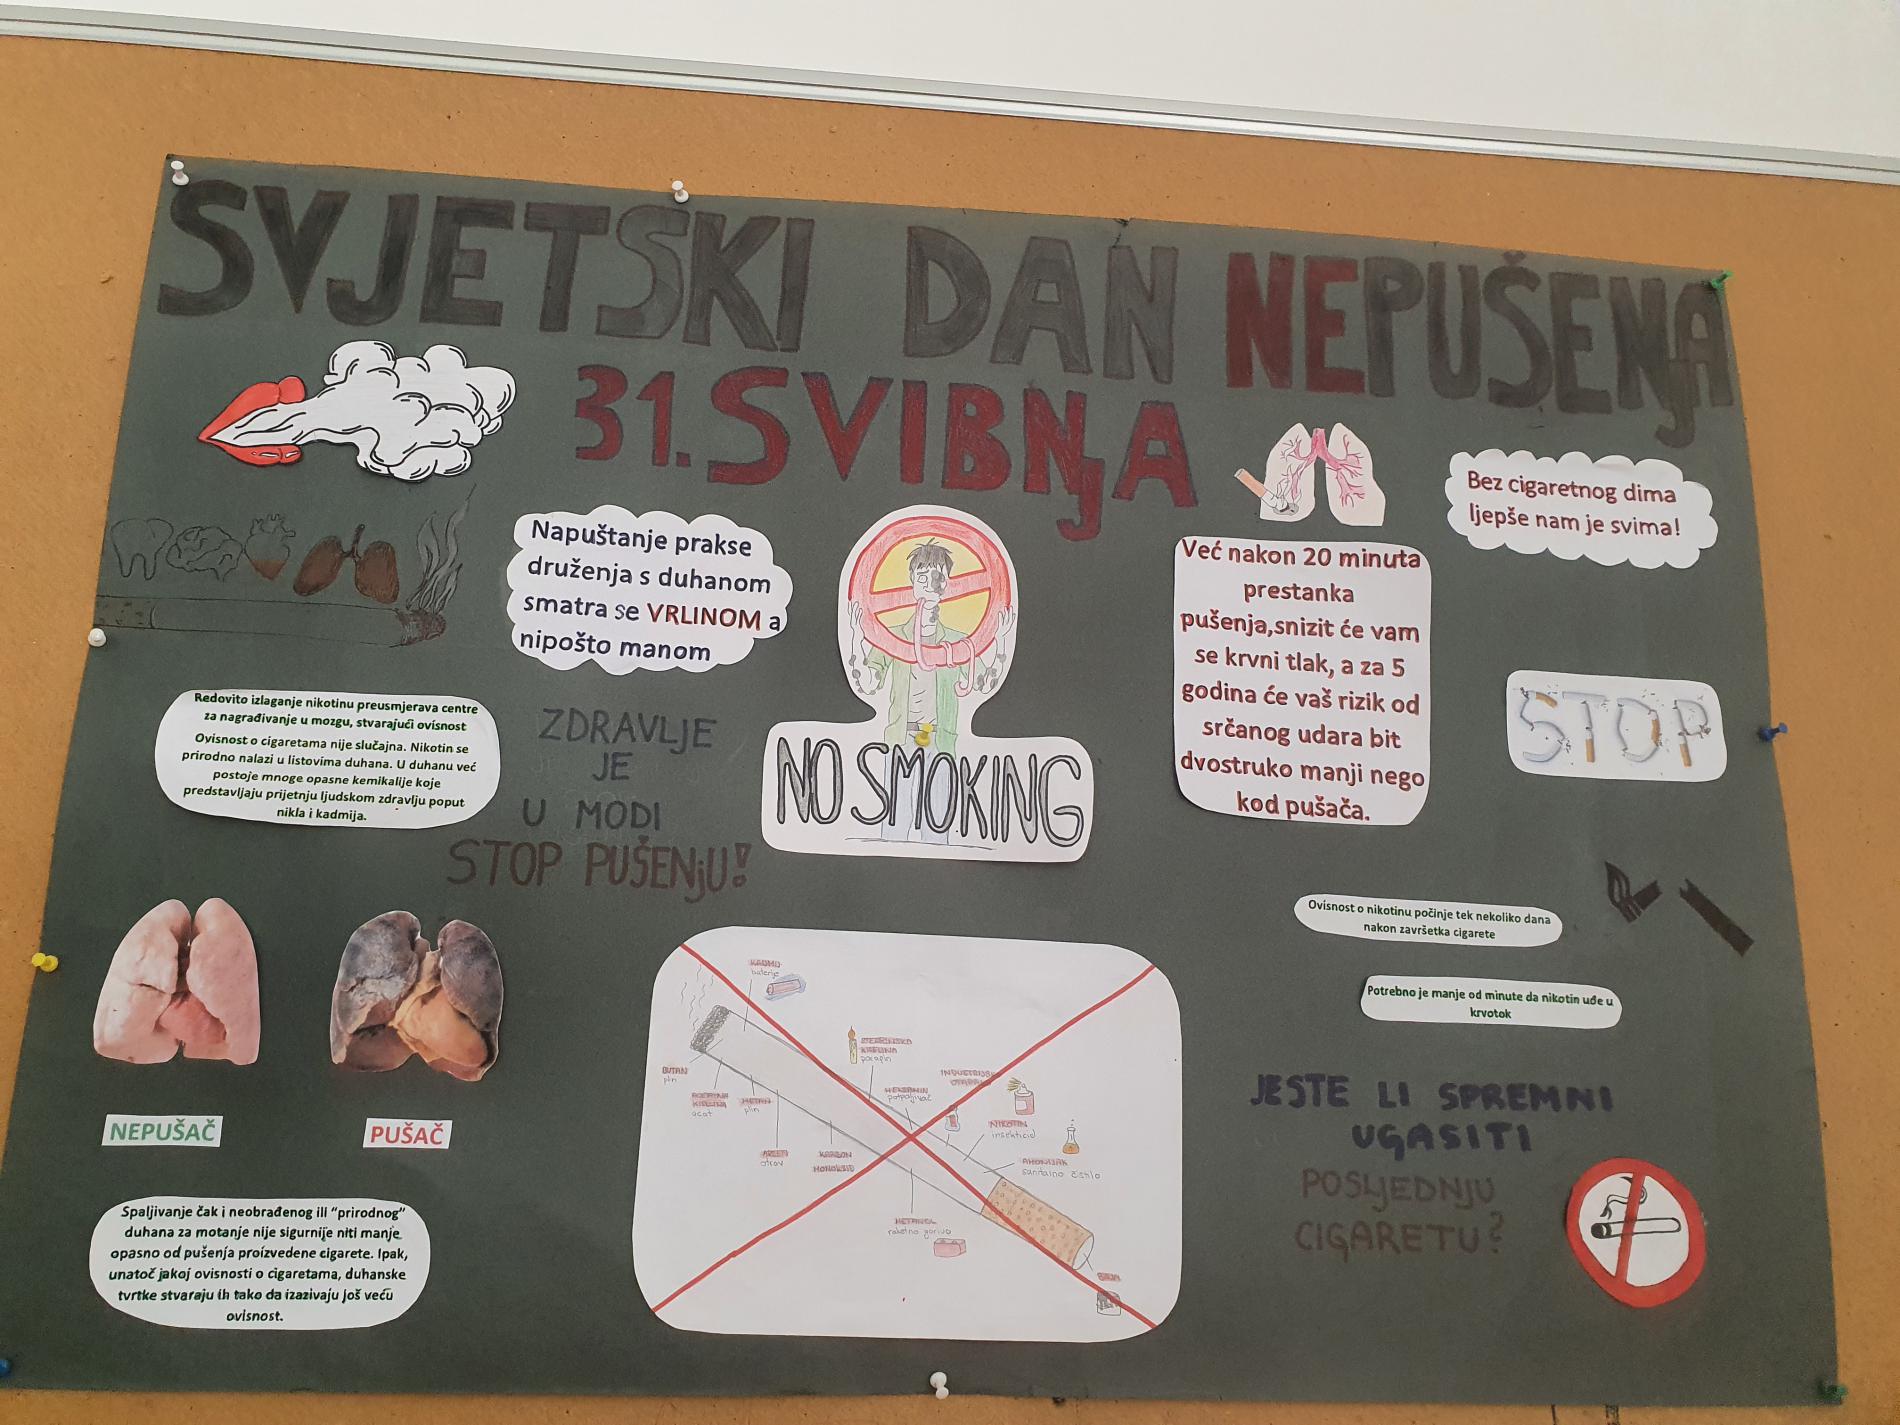 SVJETSKI DAN NEPUŠENJA
31. SVIBNJA
Bez cigaretnog dima
ljepše nam je svima!
Napuštanje prakse
druženja s duhanom
smatra se VRLINOM a
nipošto manom
Već nakon 20 minuta
prestanka
pušenja,snizit će vam
se krvni tlak, a za 5
godina će vaš rizik od
srčanog udara bit
dvostruko manji nego
kod pušača.
STOP
Redovito izlaganje nikotinu preusmjerava centre
za nagrađivanje u mozgu, stvarajući ovisnost
Ovisnost o cigaretama nije slučajna. Nikotin se
prirodno nalazi u listovima duhana. U duhanu već
postoje mnoge opasne kemikalije koje
predstavljaju prijetnju ljudskom zdravlju poput
nikla i kadmija.
ZDRAVLJE
JE
U MODI
STOP PUŠENJU!
NO SMOKING
Ovisnost o nikotinu počinje tek nekoliko dana
nakon završetka cigarete
Potrebno je manje od minute da nikotin uđe u
krvotok
NEPUŠAČ
PUŠAČ
Spaljivanje čak i neobrađenog ili “prirodnog”
duhana za motanje nije sigurnije niti manje
opasno od pušenja proizvedene cigarete. Ipak,
unatoč jakoj ovisnosti o cigaretama, duhanske
tvrtke stvaraju ih tako da izazivaju još veću
ovisnost.
baterije
STEARINSKA
KISELINA
parafin
BUTAN
plin
KISELINA
ocat
METAN
plin
otrov
KARBON
MONOKSID
NIKOTIN
insekticid
AMONIJAK
sanitarno čistilo
METANOL
raketno gorivo
JESTE LI SPREMNI
UGASITI
POSLJEDNJU
CIGARETU?